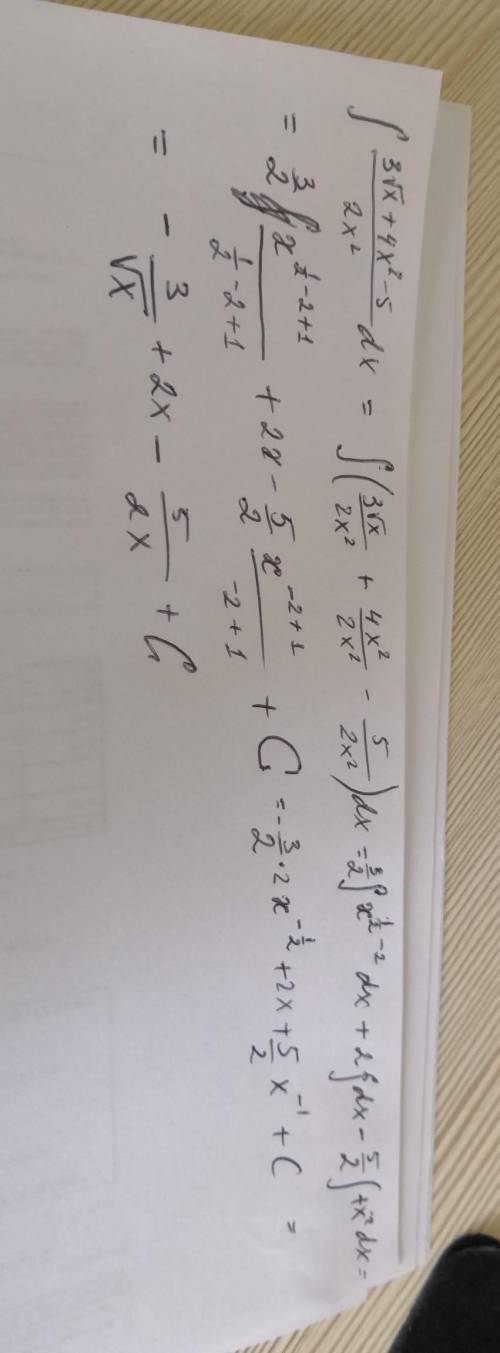 ∫ (3√x + 4x² - 5)/(2x²) dx = ∫(3√x/2x² + 4x²/2x² - 5/2x²)dx = 3/2 ∫ x^(1/2 - 2) dx + 2∫dx - 5/2 ∫ +x⁻² dx =
= 3/2 x^(1/2 - 2 + 1)/(1/2 - 2 + 1) + 2x - 5/2 x^(-2+1)/(-2+1) + C = -3/2 · 2x^(-1/2) + 2x + 5/2 x⁻¹ + C =
= - 3/√x + 2x - 5/2x + C